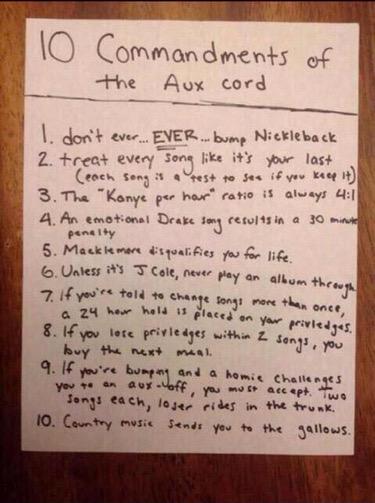 10 Commandments of
the Aux cord
1. don't ever... EVER... bump Nickleback
2. treat every song like it's your last
(each song is a test to see if you keep it)
3. The "Kanye per hour" ratio is always 4:1
4. An emotional Drake song results in a 30 minute
penalty
5. Macklemore disqualifies you for life.
6. Unless it's J Cole, never play an album through
7. If you're told to change songs more than once,
a 24 hour hold is placed on your privledges.
8. If you lose privledges within 2 songs, you
buy the next meal.
9. If you're bumping and a homie challenges
you to an aux-off, you must accept. Two
songs each, loser rides in the trunk.
10. Country music sends you to the gallows.